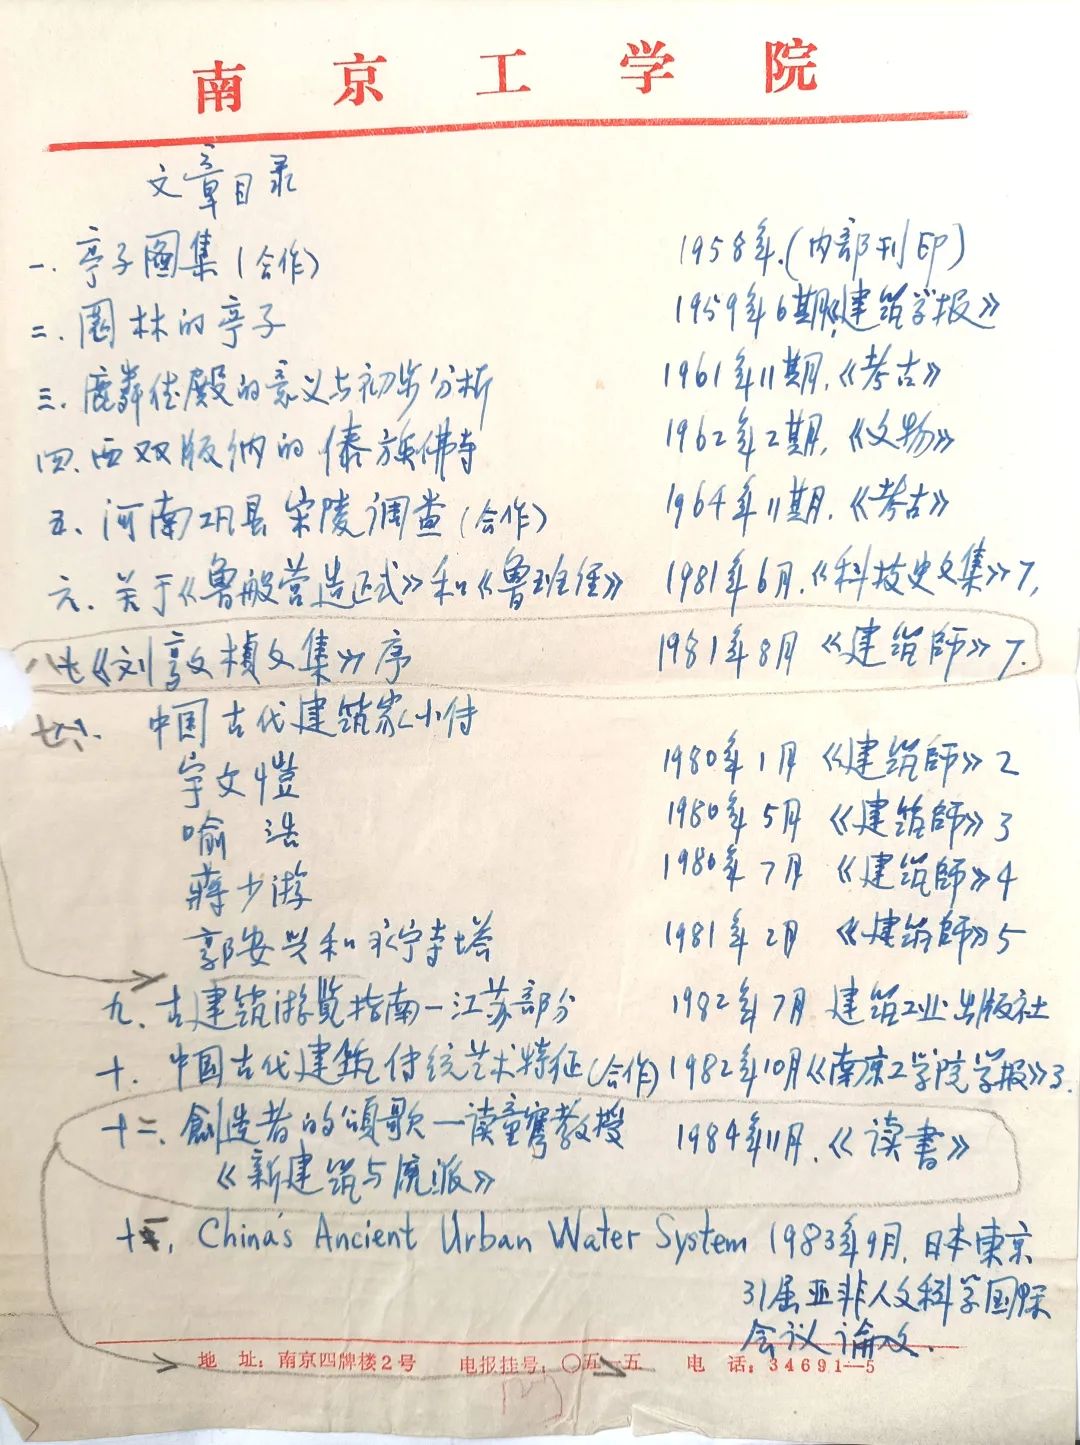 南京工学院
文章目录
一. 亭子图集(合作) 1958年.(内部刊印)
二. 园林的亭子 1959年6期《建筑学报》
三. 麟德殿的意义与初步分析 1961年11期.《考古》
四. 西双版纳的傣族佛寺 1962年2期,《文物》
五. 河南巩县宋陵调查(合作) 1964年11期.《考古》
六. 关于《鲁般营造正式》和《鲁班经》 1981年6月.《科技史文集》7,
《刘敦桢文集》序 1981年8月《建筑師》7.
中国古代建筑家小传
宇文愷 1980年1月《建筑師》2
喻浩 1980年5月《建筑師》3
蔣少游 1980年7月《建筑師》4
郭安兴和永宁寺塔 1981年2月《建筑師》5
九. 古建筑游览指南—江苏部分 1982年7月 建筑工业出版社
十. 中国古代建筑传统艺术特征(合作) 1982年10月《南京工学院学报》3.
十二. 創造者的頌歌—读童寯教授 1984年11月.《读書》
《新建筑与流派》
China's Ancient Urban Water System 1983年9月. 日本東京
31届亚非人文科学国际
会议论文.
地 址: 南京四牌楼2号 电报挂号: 〇五一五 电 话: 34691—5